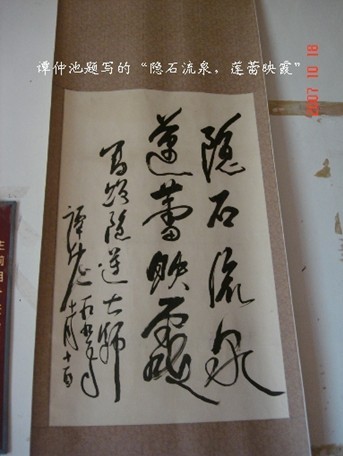 谭仲池题写的“隐石流泉，莲蕾映霞”
2007 10 18
隐石流泉
莲蕾映霞
隐莲大师
谭仲池